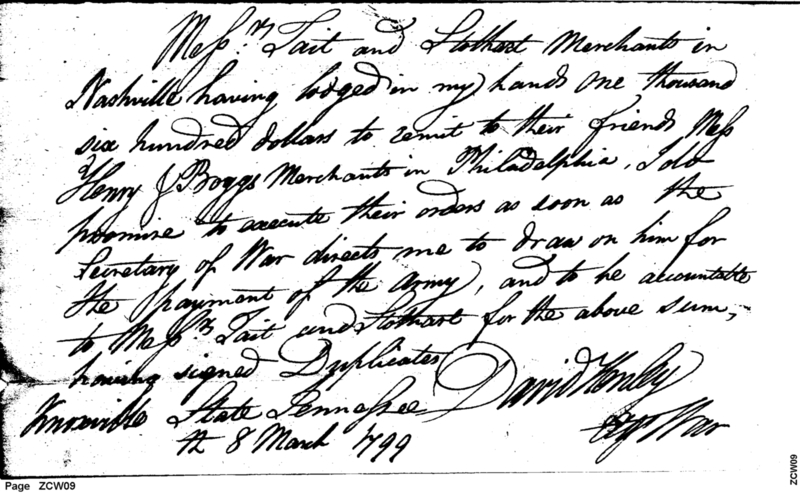 Mess.rs Tait and Stothart Merchants in
Nashville having lodged in my hands One thousand
six hundred dollars to remit to their friends Mess
Henry & Boggs Merchants in Philadelphia, I do
promise to execute their orders as soon as the
Secretary of War directs me to draw on him for
the payment of the Army, and to be accountable
to Mess.rs Tait and Stothart for the above sum,
having signed Duplicates
David Henley
Agt War
Knoxville State Tennessee
8 March 1799
Page ZCW09
ZCW09